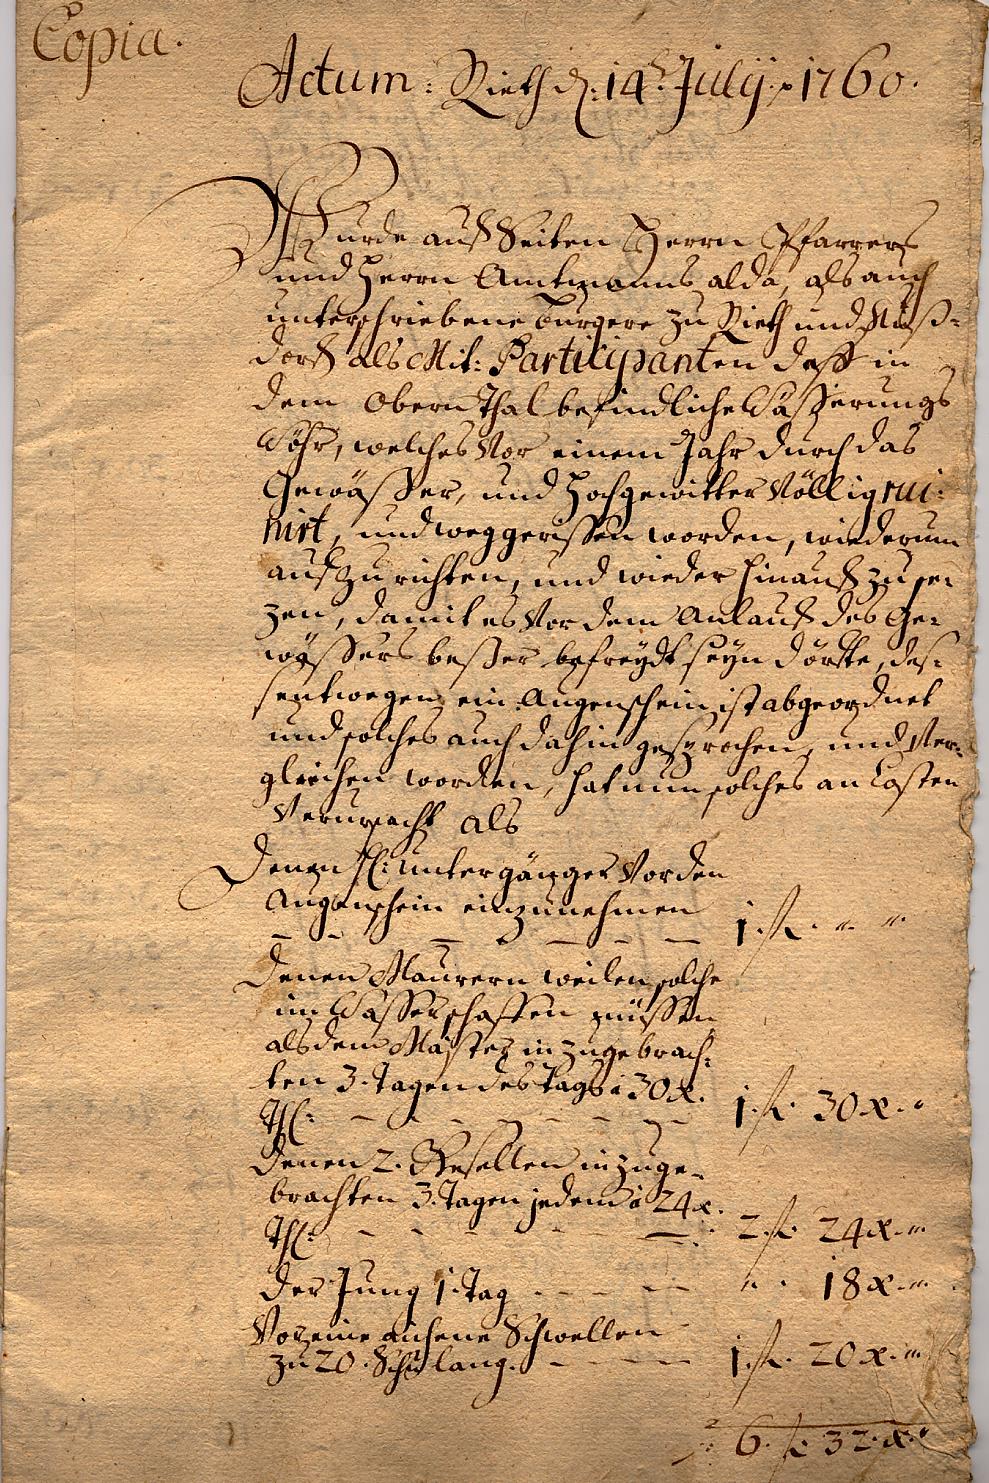 Copia.
Actum: Rieth d: 14.t July. 1760.
Wurde auf Seiten Herrn Pfarrers
und Herrn Amtmanns alda, als auch
unterschriebene Burgere zu Rieth und Nuß-
dorf als Mit: Participanten deß in
dem Obern Thal befindliche Wäßerungs
Wöhr, welches Vor einem Jahr durch das
Gewäßer, und Hochgewitter Völlig rui-
nirt, und weggerissen worden, wiederum
aufzurichten, und wieder hinauf zu se-
zen, damit es Vor dem Anlauf des Ge-
wäßers beßer befreydt seyn dörffte, des-
sentwegen ein Augenschein ist abgeordnet
und solches auch dahin gesprochen, und Ver-
glichen worden, hat nun solches an Costen
Verursacht als
Denen Untergänger Vor den
Augenschein einzunehmen 1. fl. " "
Denen Maurern weilen solche
im Wasser schaffen müssen
als dem Mäister in zugebrach-
ten 3. Tagen des Tags à 30 x.
Th: 1. fl. 30 x. "
Denen 2. Gesellen in zuge-
brachten 3. Tagen jedem à 24 x.
Th: 2. fl. 24 x. "
der Jung 1. Tag " . 18 x. "
Vor eine aichene Schwellen
zu 20. Schu lang. 1. fl. 20 x. "
6. fl. 32. x. "